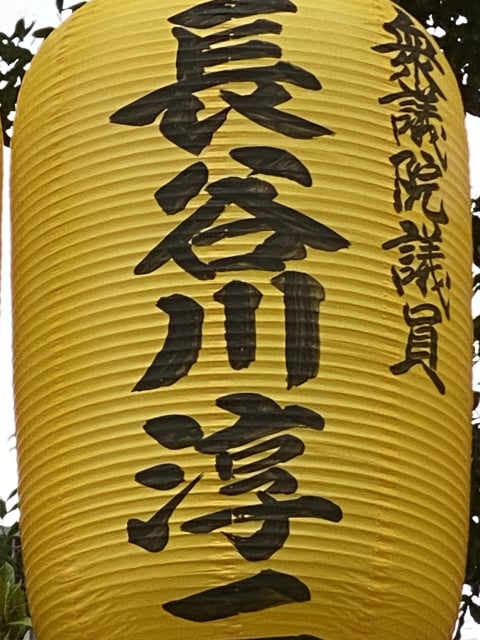 衆議院議員
長谷川淳二